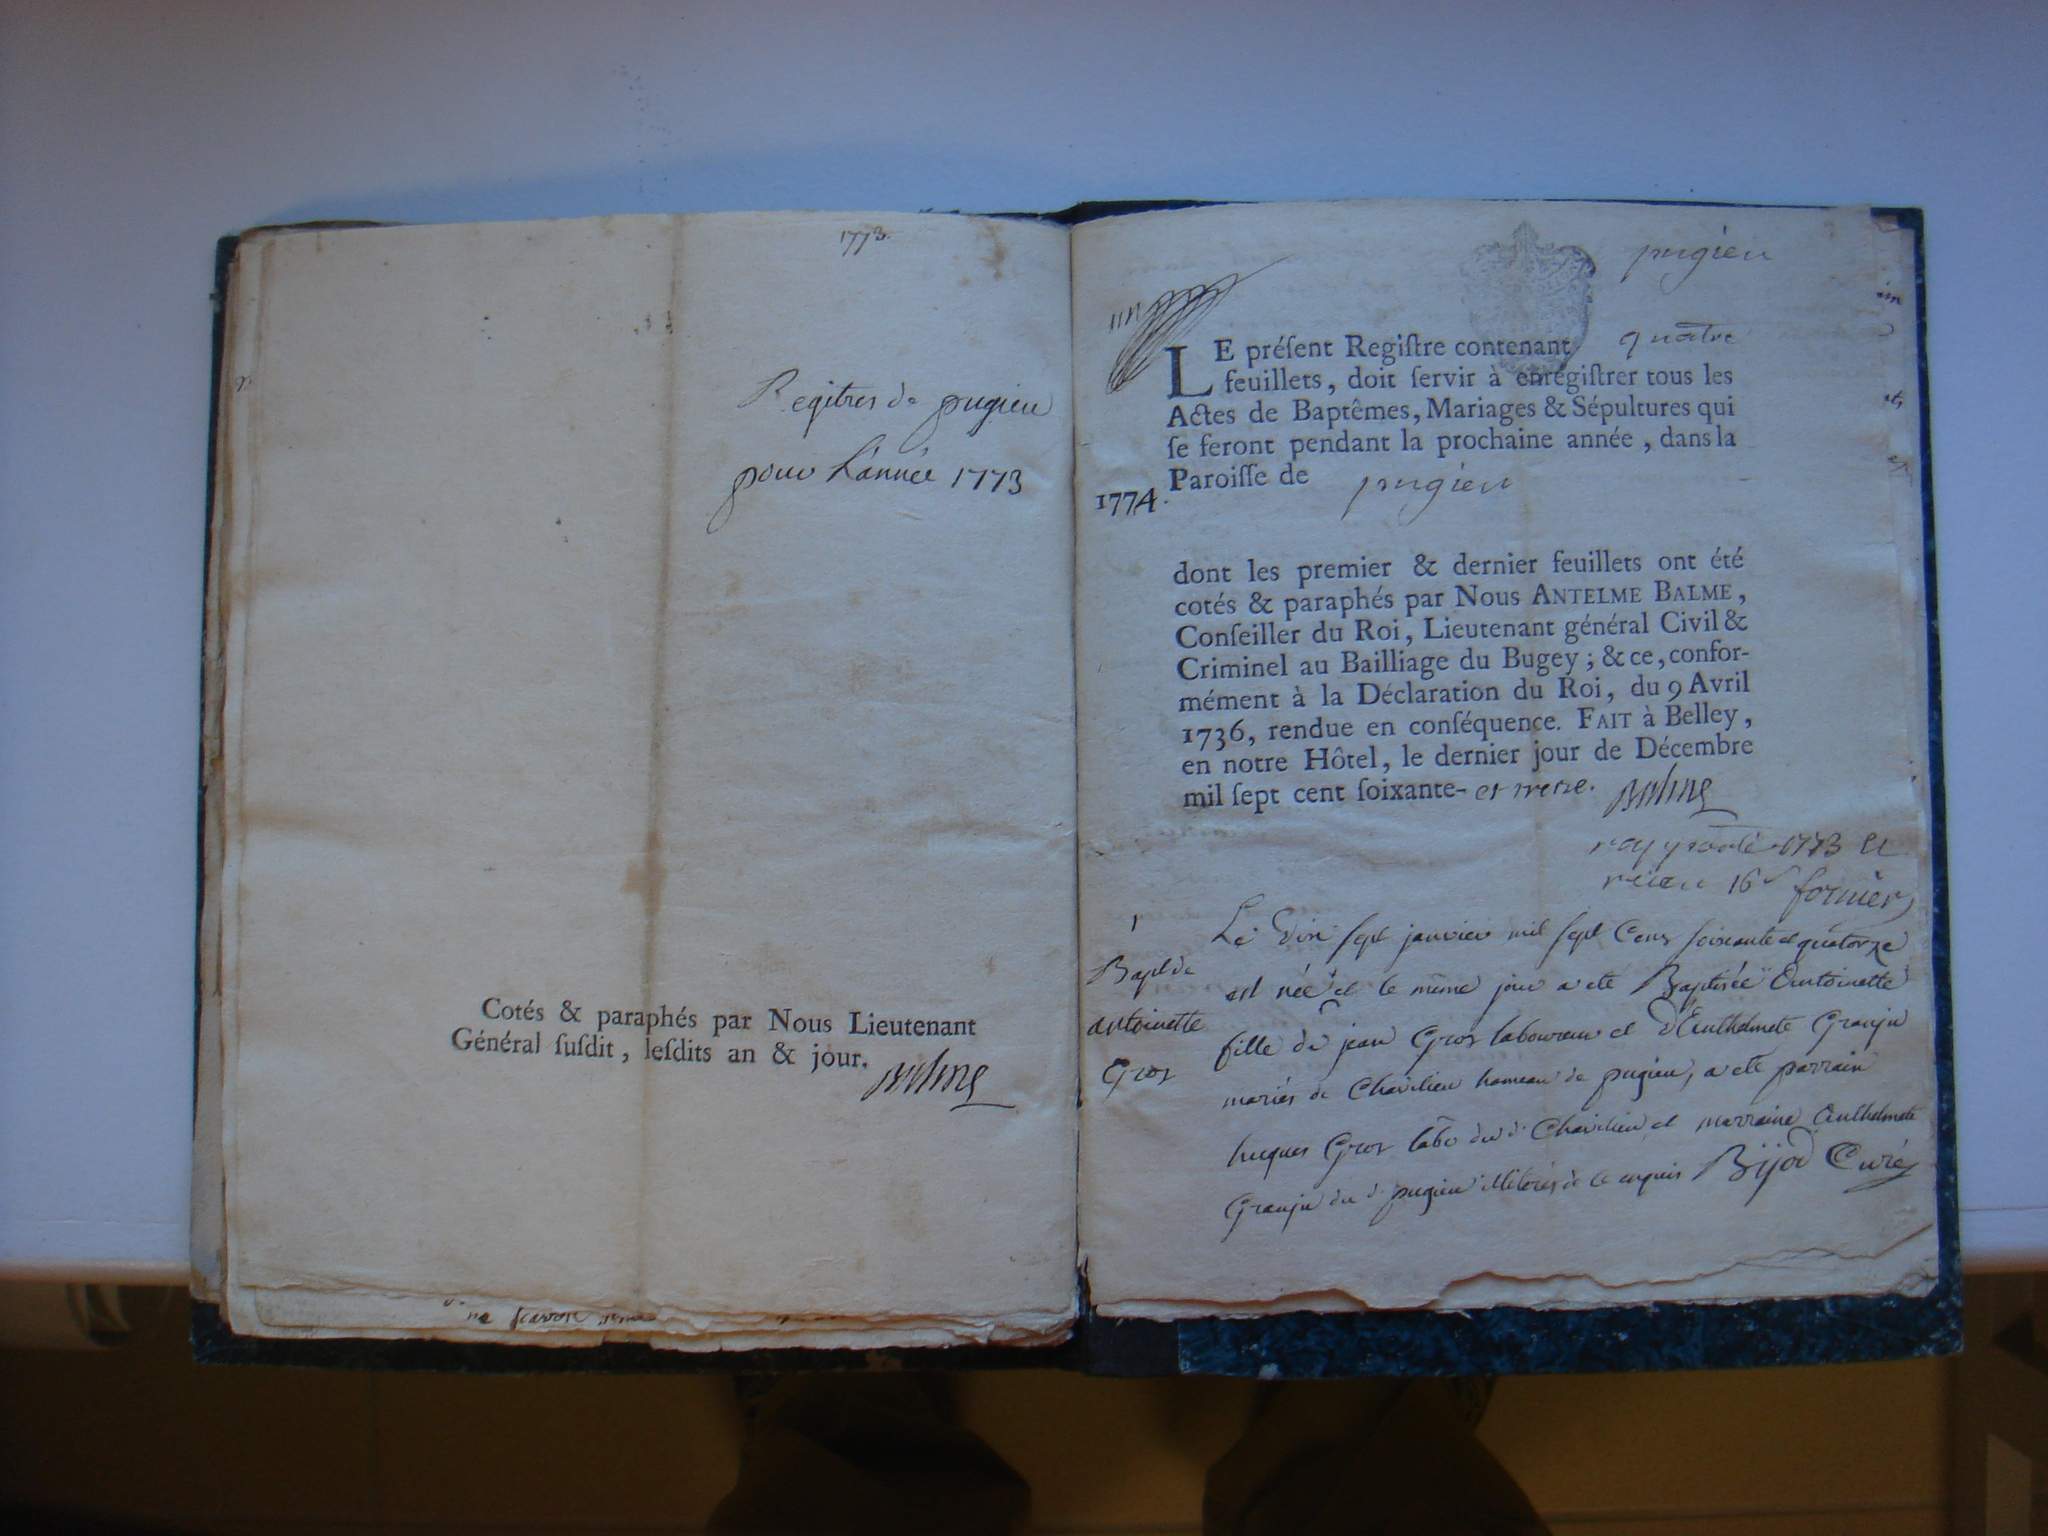 1773.
Regitres de pugieu
pour L'année 1773
Cotés & paraphés par Nous Lieutenant
Général ſuſdit, leſdits an & jour.
Balme
pugieu
LE préſent Regiſtre contenant quatre
feuillets, doit ſervir à enregiſtrer tous les
Actes de Baptêmes, Mariages & Sépultures qui
ſe feront pendant la prochaine année, dans la
Paroiſſe de pugieu
1774.
dont les premier & dernier feuillets ont été
cotés & paraphés par Nous ANTELME BALME,
Conſeiller du Roi, Lieutenant général Civil &
Criminel au Bailliage du Bugey; & ce, confor-
mément à la Déclaration du Roi, du 9 Avril
1736, rendue en conſéquence. FAIT à Belley,
en notre Hôtel, le dernier jour de Décembre
mil ſept cent ſoixante- et treze. Balme
1773 et
16 s fornier
1
Bapt de
antoinette
Gros
Le dix sept janvier mil sept Cens soixante et quatorze
est née et le même jour a ete Baptisée Antoinette
fille de jean Gros laboureur et d'Anthelmete Granju
mariés de Chavilieu hameau de pugieu, a ete parrain
hugues Gros labo dud Chavilieu et marraine Anthelmete
Granju du d pugieu illiterés de ce enquis Bijod Curé